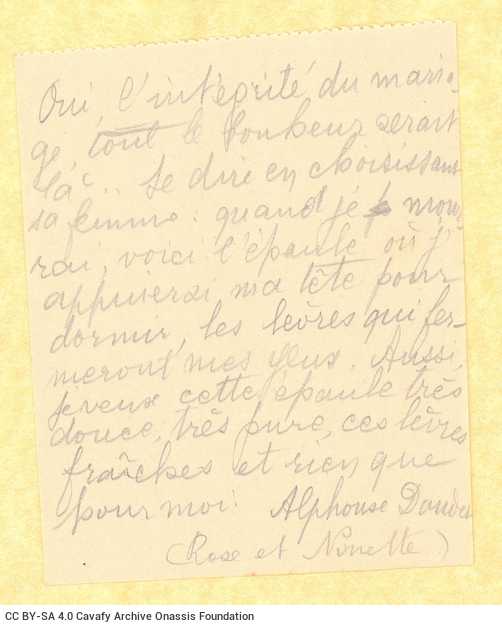 Oui, l'intégrité du maria-
ge, tout le bonheur serait
là... Se dire en choisissant
sa femme: quand je mour-
rai, voici l'épaule où j'
appuierai ma tête pour
dormir, les lèvres qui fer-
meront mes yeux. Aussi,
je veux cette épaule très
douce, très pure, ces lèvres
fraîches et rien que
pour moi! Alphonse Daudet
(Rose et Ninette)
CC BY-SA 4.0 Cavafy Archive Onassis Foundation